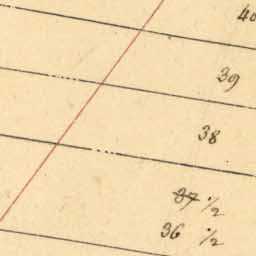 40
39
38
37 1/2
36 1/2